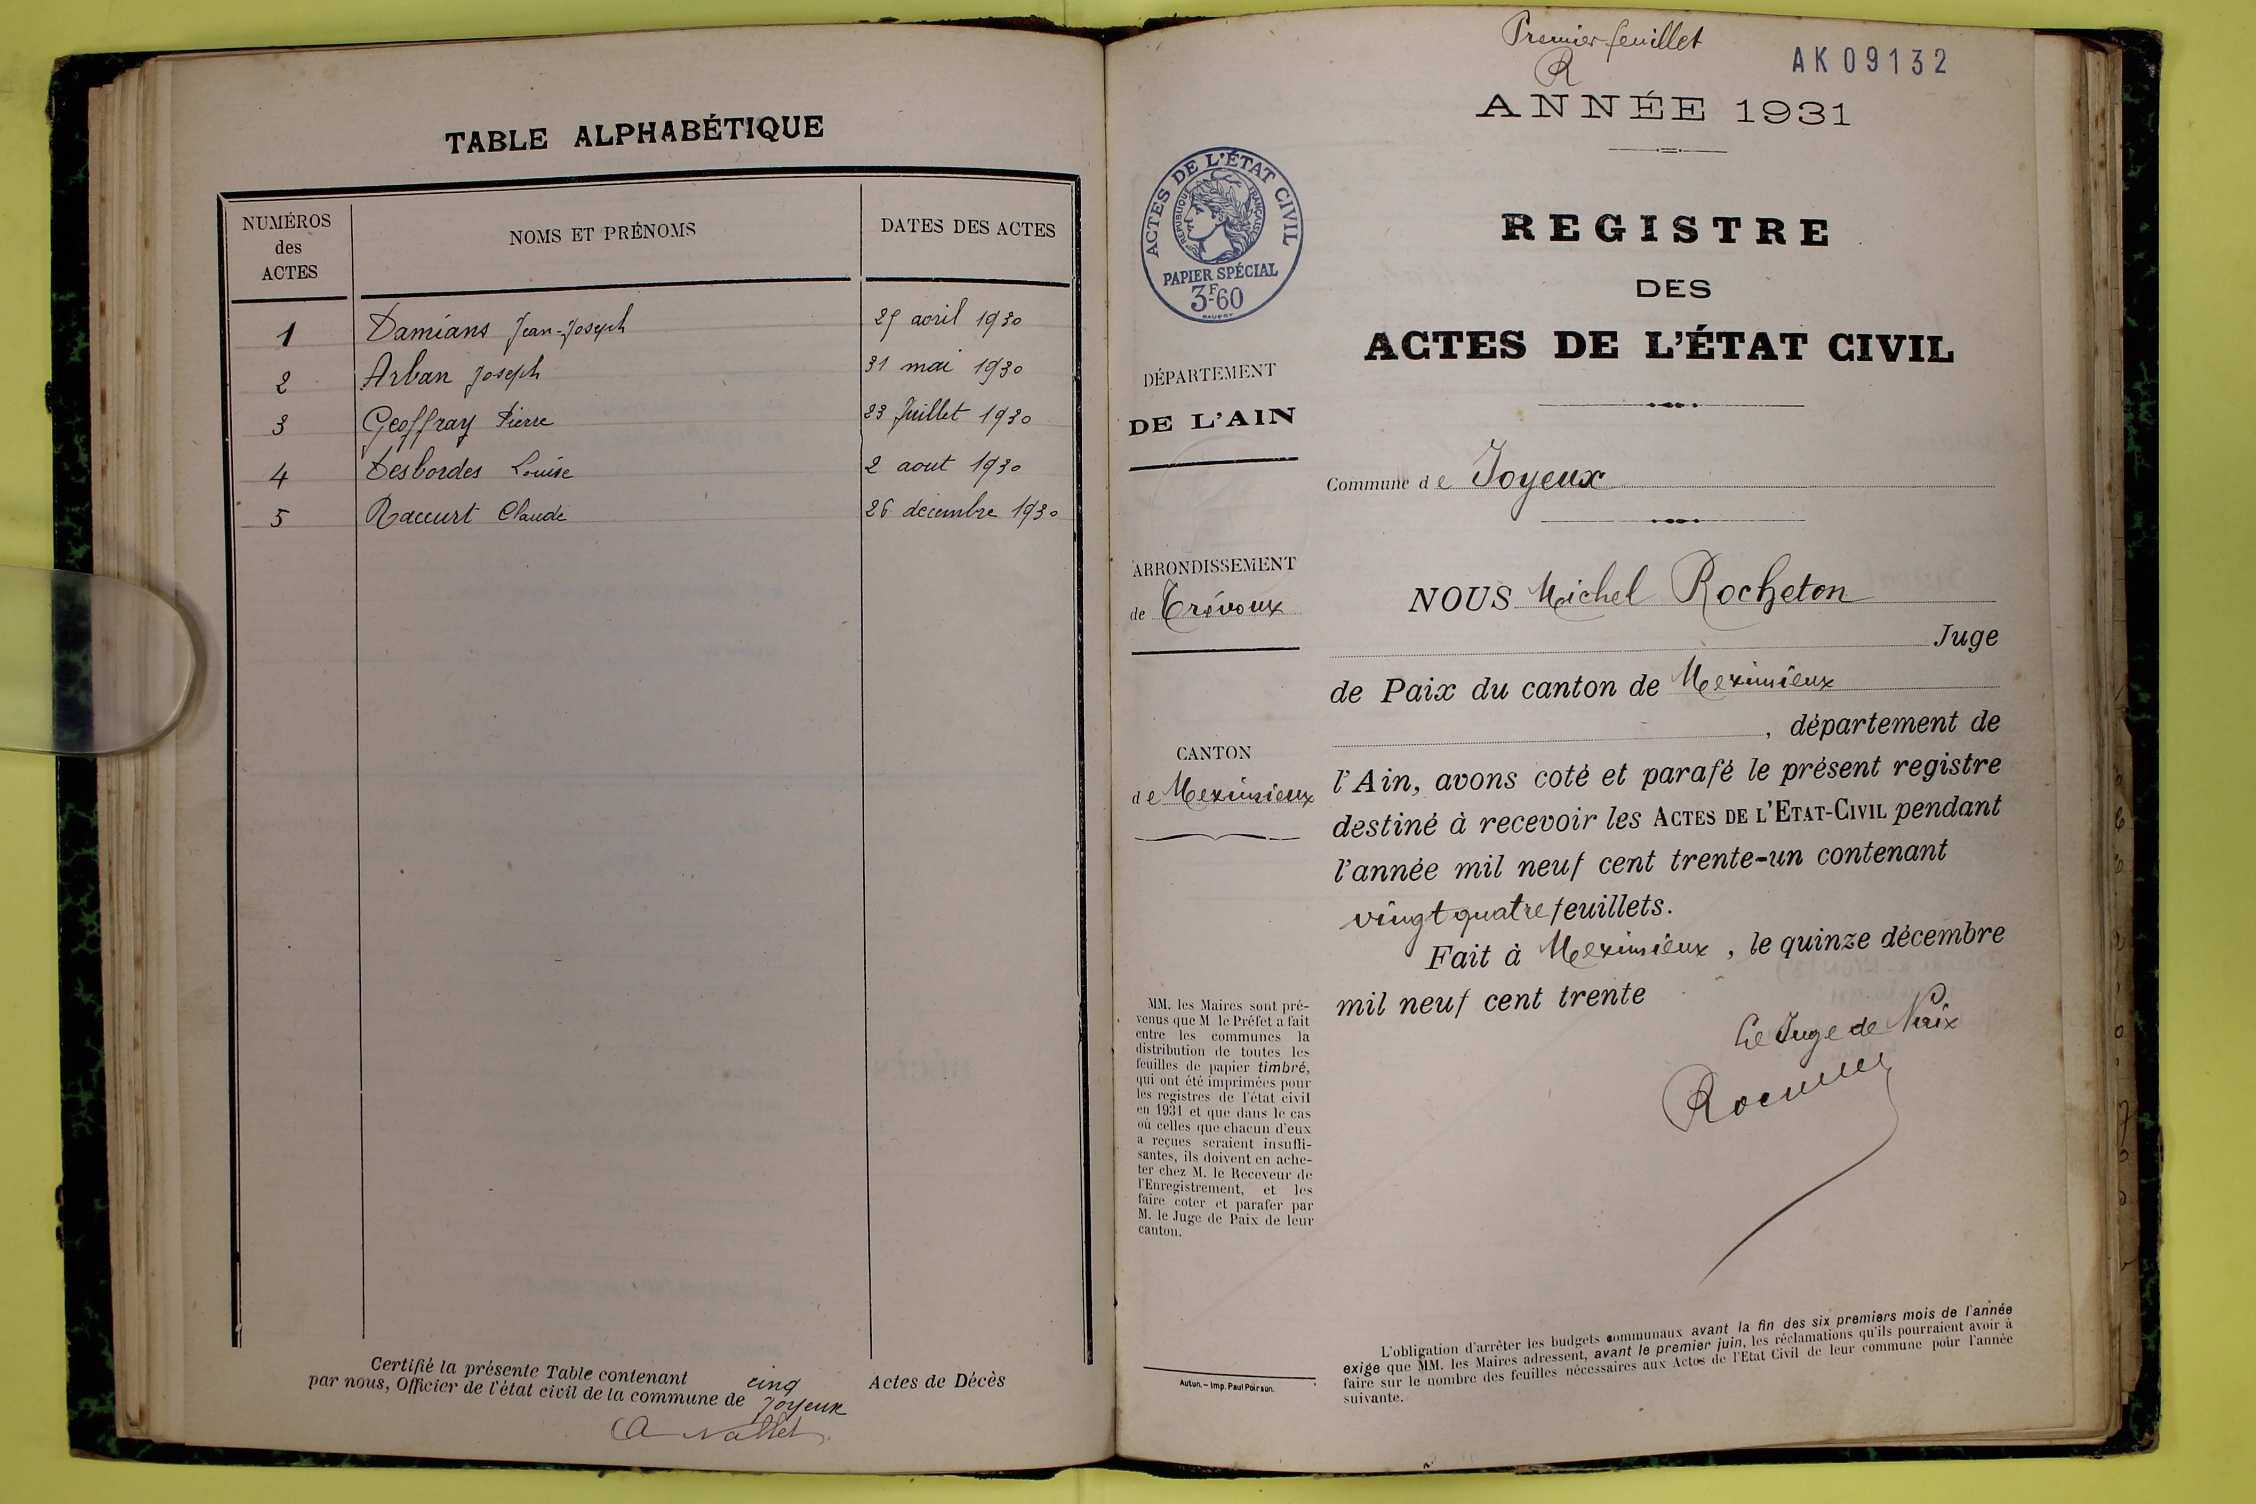 TABLE ALPHABÉTIQUE
NUMÉROS
des
ACTES
NOMS ET PRÉNOMS
DATES DES ACTES
1 Damians Jean-Joseph 29 avril 1930
2 Arban Joseph 31 mai 1930
3 Geoffray Pierre 23 Juillet 1930
4 Desbordes Louise 2 aout 1930
5 Raccurt Claude 26 décembre 1930
Certifié la présente Table contenant cinq Actes de Décès
par nous, Officier de l'état civil de la commune de Joyeux
Premier feuillet
R
AK09132
ANNÉE 1931
ACTES DE L'ÉTAT CIVIL
RÉPUBLIQUE FRANÇAISE
PAPIER SPÉCIAL
3F-60
REGISTRE
DES
ACTES DE L'ÉTAT CIVIL
DÉPARTEMENT
DE L'AIN
Commune de Joyeux
ARRONDISSEMENT
de Trévoux
CANTON
de Meximieux
NOUS Michel Rocheton
Juge
de Paix du canton de Meximieux
, département de
l'Ain, avons coté et parafé le présent registre
destiné à recevoir les ACTES DE L'ETAT-CIVIL pendant
l'année mil neuf cent trente-un contenant
vingt quatre feuillets.
Fait à Meximieux, le quinze décembre
mil neuf cent trente
Le Juge de Paix
MM. les Maires sont pré-
venus que M le Préfet a fait
entre les communes la
distribution de toutes les
feuilles de papier timbré,
qui ont été imprimées pour
les registres de l'état civil
en 1931 et que dans le cas
où celles que chacun d'eux
a reçues seraient insuffi-
santes, ils doivent en ache-
ter chez M. le Receveur de
l'Enregistrement, et les
faire coter et parafer par
M. le Juge de Paix de leur
canton.
Autun. – Imp. Paul Poirson.
L'obligation d'arrêter les budgets communaux avant la fin des six premiers mois de l'année
exige que MM. les Maires adressent, avant le premier juin, les réclamations qu'ils pourraient avoir à
faire sur le nombre des feuilles nécessaires aux Actes de l'Etat Civil de leur commune pour l'année
suivante.